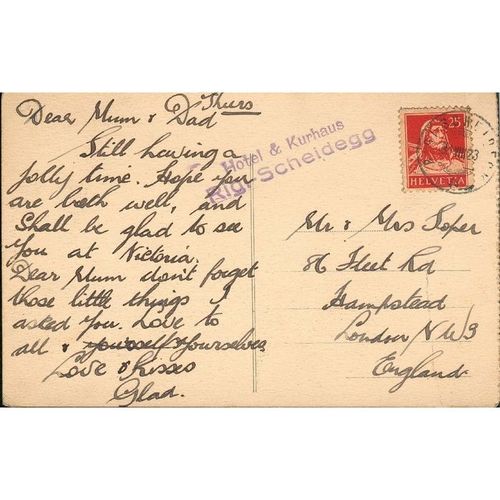 Thurs
Dear Mum & Dad
Still having a
jolly time. Hope you
are both well, and
Shall be glad to see
you at Victoria.
Dear Mum don't forget
those little things I
asked you. Love to
all & yourself yourselves
Love & kisses
Glad.
Hotel & Kurhaus
Rigi-Scheidegg
25
HELVETIA
Mr & Mrs Soper
86 Fleet Rd
Hampstead
London N W 3
England.